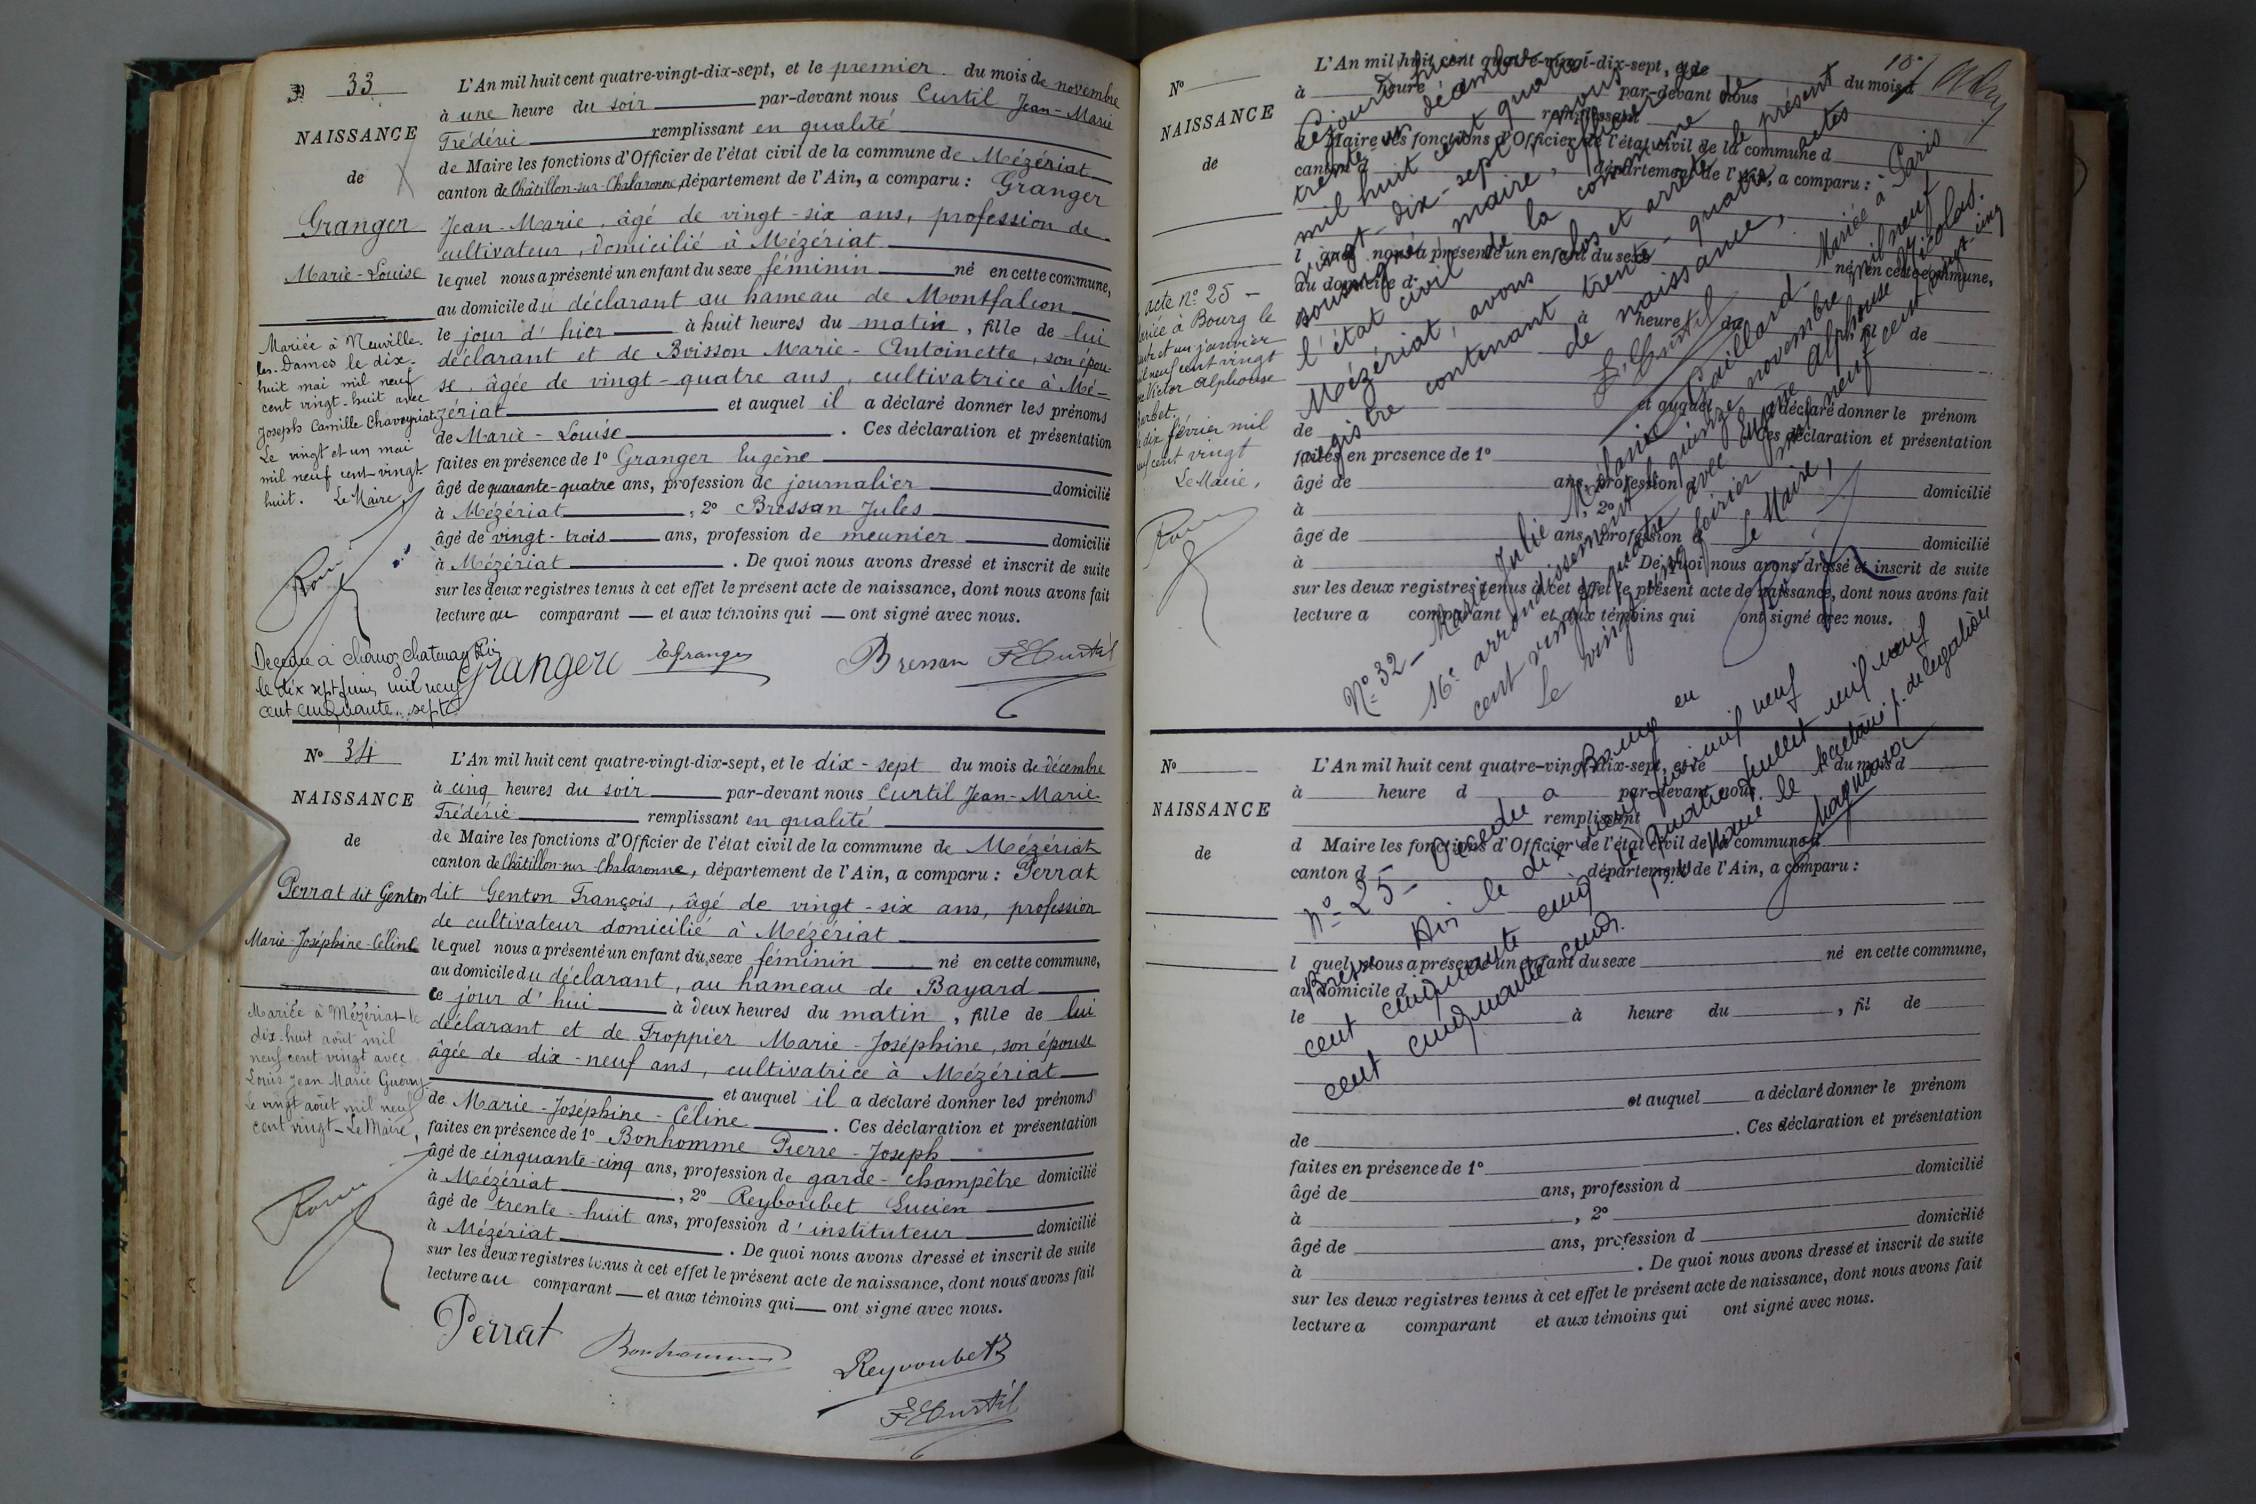 N° 33
NAISSANCE
de
Granger
Marie-Louise
Mariée à Neuville-
les-Dames le dix-
huit mai mil neuf
cent vingt-huit avec
Joseph Camille Chaveyriat
Le vingt et un mai
mil neuf cent-vingt-
huit. Le Maire,
Décédée à
le dix sept juin mil neuf
cent cinquante-sept
L'An mil huit cent quatre-vingt-dix-sept, et le premier du mois de novembre
à une heure du soir par-devant nous Curtil Jean-Marie
Frédéric remplissant en qualité
de Maire les fonctions d'Officier de l'état civil de la commune de Mézériat
canton de Châtillon-sur-Chalaronne, département de l'Ain, a comparu : Granger
Jean-Marie, âgé de vingt-six ans, profession de
cultivateur, domicilié à Mézériat
lequel nous a présenté un enfant du sexe féminin né en cette commune,
au domicile du déclarant au hameau de Montfalcon
le jour d'hier à huit heures du matin, fille de lui
déclarant et de Buisson Marie-Antoinette, son épou-
se, âgée de vingt-quatre ans, cultivatrice à Mé-
zériat et auquel il a déclaré donner les prénoms
de Marie-Louise. Ces déclaration et présentation
faites en présence de 1° Granger Eugène
âgé de quarante-quatre ans, profession de journalier domicilié
à Mézériat, 2° Bressan Jules
âgé de vingt-trois ans, profession de meunier domicilié
à Mézériat. De quoi nous avons dressé et inscrit de suite
sur les deux registres tenus à cet effet le présent acte de naissance, dont nous avons fait
lecture au comparant et aux témoins qui ont signé avec nous.
Granger EGranger Bressan FCurtil
N° 34
NAISSANCE
de
Perrat dit Genton
Marie-Joséphine-Céline
Mariée à Mézériat le
dix-huit août mil
neuf cent vingt avec
Louis Jean Marie
Le vingt août mil neuf
cent vingt - Le Maire,
L'An mil huit cent quatre-vingt-dix-sept, et le dix-sept du mois de décembre
à cinq heures du soir par-devant nous Curtil Jean-Marie
Frédéric remplissant en qualité
de Maire les fonctions d'Officier de l'état civil de la commune de Mézériat
canton de Châtillon-sur-Chalaronne, département de l'Ain, a comparu : Perrat
dit Genton François, âgé de vingt-six ans, profession
de cultivateur domicilié à Mézériat
lequel nous a présenté un enfant du sexe féminin né en cette commune,
au domicile du déclarant, au hameau de Bayard
ce jour d'hui à deux heures du matin, fille de lui
déclarant et de Froppier Marie-Joséphine, son épouse
âgée de dix-neuf ans, cultivatrice à Mézériat
et auquel il a déclaré donner les prénoms
de Marie-Joséphine-Céline. Ces déclaration et présentation
faites en présence de 1° Bonhomme Pierre-Joseph
âgé de cinquante-cinq ans, profession de garde-champêtre domicilié
à Mézériat, 2° Reyboubet Lucien
âgé de trente-huit ans, profession d'instituteur domicilié
à Mézériat. De quoi nous avons dressé et inscrit de suite
sur les deux registres tenus à cet effet le présent acte de naissance, dont nous avons fait
lecture au comparant et aux témoins qui ont signé avec nous.
Perrat Bonhomme Reyvoubet
FCurtil
N°
NAISSANCE
de
acte n° 25 -
à Bourg le
et un janvier
mil neuf cent vingt
Victor Alphonse
dix février mil
neuf cent vingt
Le Maire,
L'An mil huit cent quatre-vingt-dix-sept, et le du mois d
à heure par-devant nous
remplissant
d Maire les fonctions d'Officier de l'état civil de la commune d
canton d département de l'Ain, a comparu :
l quel nous a présenté un enfant du sexe né en cette commune,
au domicile d
à heure du fil de
et auquel a déclaré donner le prénom
de Ces déclaration et présentation
faites en présence de 1°
âgé de ans, profession d domicilié
à , 2°
âgé de ans, profession d domicilié
à . De quoi nous avons dressé et inscrit de suite
sur les deux registres tenus à cet effet le présent acte de naissance, dont nous avons fait
lecture a comparant et aux témoins qui ont signé avec nous.
Cejourd'hui
trente un décembre
mil huit cent quatre
vingt-dix-sept, nous
soussigné maire, officier de
l'état civil de la commune de
Mézériat, avons clos et arrêté le présent
registre contenant trente-quatre actes
de naissance,
F. Curtil
N° 32 - Marie Julie Mélanie Gaillard - Mariée à Paris
16e arrondissement le quinze novembre mil neuf
cent vingt quatre avec Eugène Alphonse Nicolas.
Le vingt cinq février mil neuf cent vingt cinq
Le Maire,
N°
NAISSANCE
de
L'An mil huit cent quatre-vingt-dix-sept, et le du mois d
à heure d par-devant nous
remplissant
d Maire les fonctions d'Officier de l'état civil de la commune d
canton d département de l'Ain, a comparu :
l quel nous a présenté un enfant du sexe né en cette commune,
au domicile d
le à heure du , fil de
et auquel a déclaré donner le prénom
de . Ces déclaration et présentation
faites en présence de 1°
âgé de ans, profession d domicilié
à , 2°
âgé de ans, profession d domicilié
à . De quoi nous avons dressé et inscrit de suite
sur les deux registres tenus à cet effet le présent acte de naissance, dont nous avons fait
lecture a comparant et aux témoins qui ont signé avec nous.
N° 25 - Décédée à Bourg en
Bresse Ain le dix neuf juin mil neuf
cent cinquante cinq le quatre juillet mil neuf
cent cinquante cinq. P. le Maire le secrétaire p. délégation